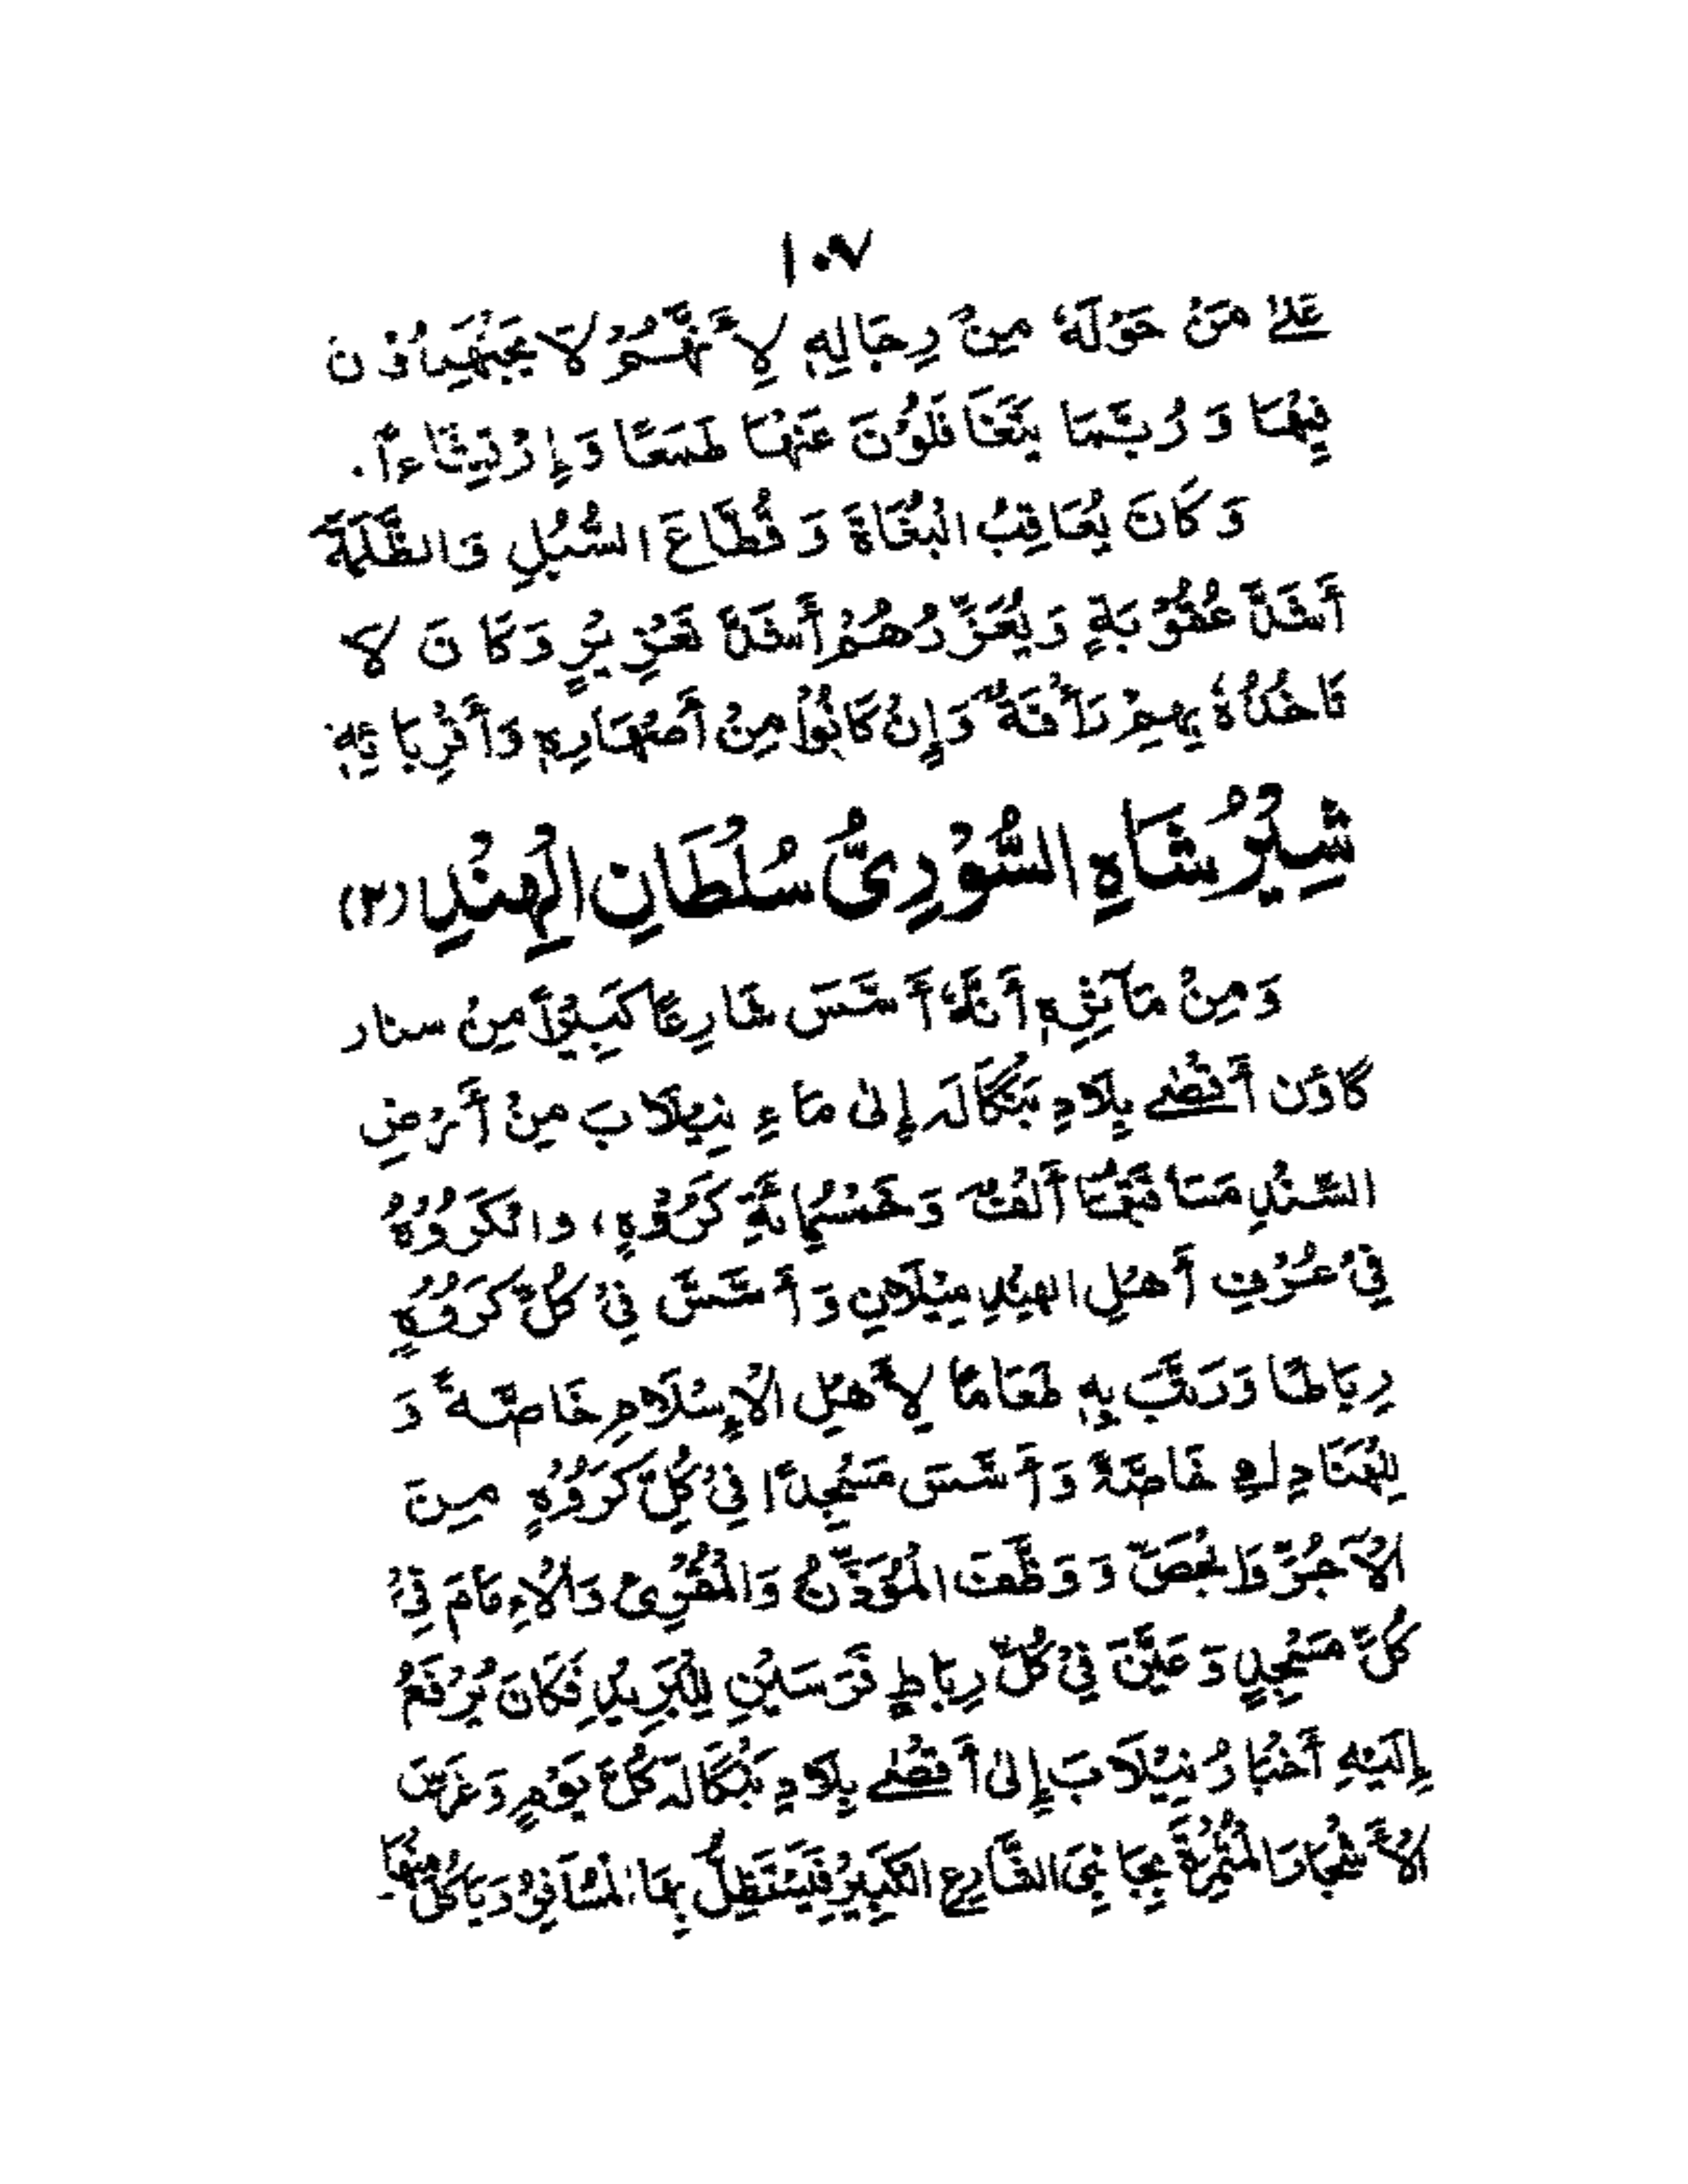 ١٠٧
عَلَىٰ مَنْ حَوْلَهٗ مِنْ رِجَالِهٖ لِأَنَّهُمْ لَا يَجْتَهِدُوْنَ
فِيْهَا وَرُبَّمَا يَتَغَافَلُوْنَ عَنْهَا طَمَعًا وَإِرْتِشَاءً.
وَكَانَ يُعَاقِبُ الْبُغَاةَ وَقُطَّاعَ السُّبُلِ وَالظَّلَمَةَ
أَشَدَّ عُقُوْبَةٍ وَيُعَزِّرُهُمْ أَشَدَّ تَعْزِيْرٍ وَكَانَ لَا
تَاخُذُهٗ بِهِمْ رَأْفَةٌ وَإِنْ كَانُوْا مِنْ أَصْهَارِهٖ وَأَقْرِبَائِهٖ
شِيْرُشَاهِ السُّوْرِىُّ سُلْطَانِ الْهِنْدِ (٢)
وَمِنْ مَآثِرِهٖ أَنَّهٗ أَسَّسَ شَارِعًا كَبِيْرًا مِنْ سنار
كاؤن أَقْصٰى بِلَادِ بَنْگَالَہ إِلىٰ مَاءِ نِيْلَابَ مِنْ أَرْضِ
السِّنْدِ مَسَافَتُهَا أَلْفٌ وَخَمْسُمِائَةِ كَرُوْهٍ، والْكَرُوْهُ
فِيْ عُرْفِ أَهْلِ الهِنْدِ مِيْلَانِ وَأَسَّسَ فِيْ كُلِّ كَرُوْهٍ
رِبَاطًا وَرَتَّبَ بِهٖ طَعَامًا لِأَهْلِ الْإِسْلَامِ خَاصَّةً وَ
لِلْهَنَادِكِ خَاصَّةً وَأَسَّسَ مَسْجِدًا فِيْ كُلِّ كَرُوْهٍ مِنَ
الْآجُرِّ وَالْجِصِّ وَوَظَّفَ الْمُؤَذِّنَ وَالْمُقْرِئَ وَالْإِمَامَ فِيْ
كُلِّ مَسْجِدٍ وَعَيَّنَ فِيْ كُلِّ رِبَاطٍ فَرَسَيْنِ لِلْبَرِيْدِ فَكَانَ يُرْفَعُ
إِلَيْهِ أَخْبَارُ نِيْلَابَ إِلىٰ أَقْصٰى بِلَادِ بَنْگَالَہ كُلَّ يَوْمٍ وَغَرَسَ
الْأَشْجَارَ الْمُثْمِرَةَ بِجَانِبَيِ الشَّارِعِ الْكَبِيْرِ فَيَسْتَظِلُّ بِهَا الْمُسَافِرُ وَيَاكُلُ مِنْهَا -